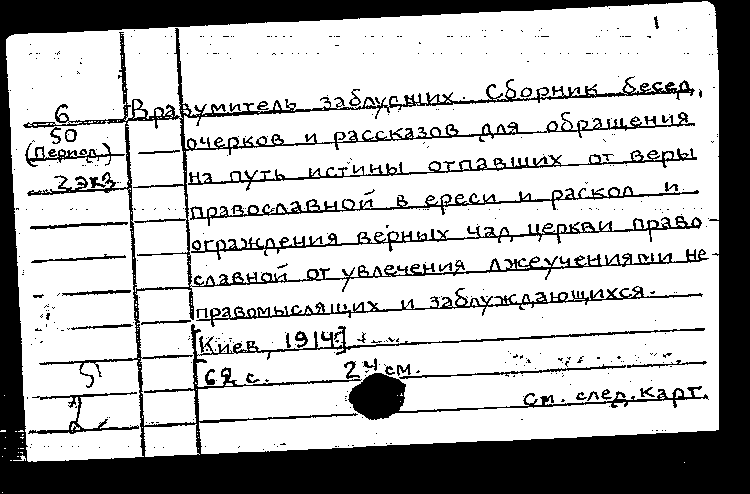 1
6 Вразумитель заблудших. Сборник бесед,
50 очерков и рассказов для обращения
(Период.) на путь истины отпавших от веры
2 экз православной в ереси и раскол и
ограждения верных чад церкви право-
славной от увлечения лжеучениями не-
правомыслящих и заблуждающихся.
[Киев, 1914]
62 с. 24 см.
2
См. след. карт.